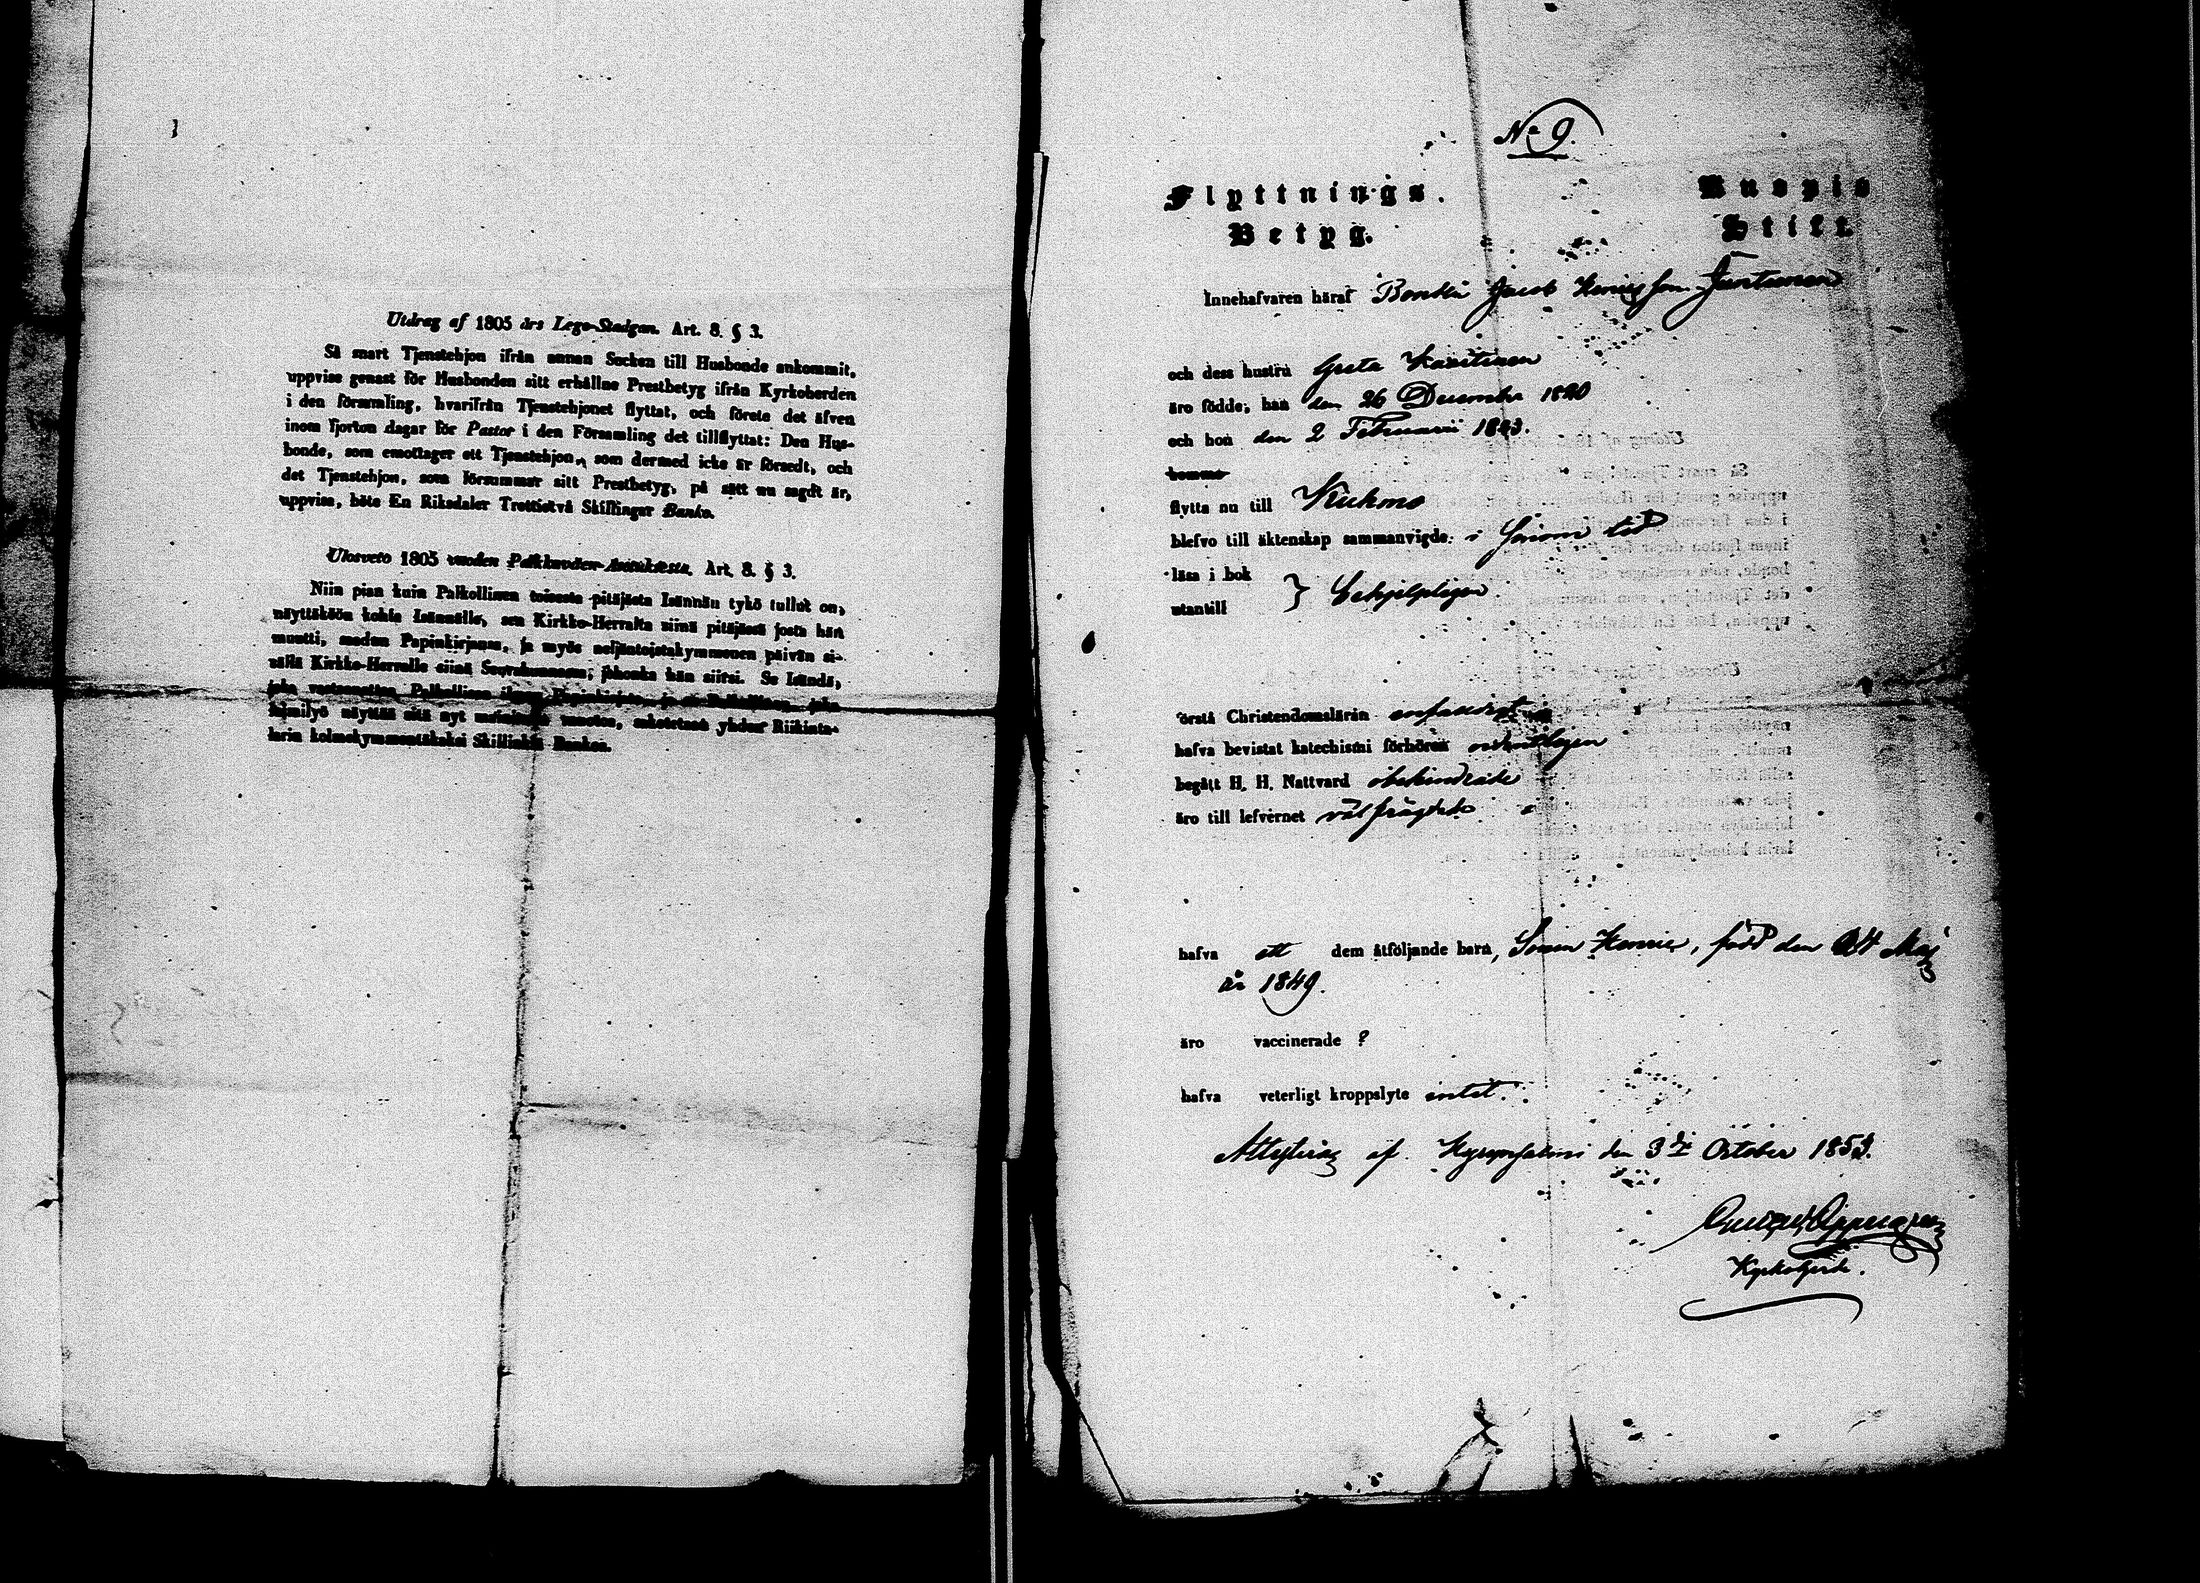 Utdrag af 1805 års Lego-Stadgan. Art. 8. § 3.
Så snart Tjenstehjon ifrån annan Socken till Husbonde ankommit,
uppvise genast för Husbonden sitt erhållne Prestbetyg ifrån Kyrkoherden
i den församling, hvarifrån Tjenstehjonet flyttat, och förete det äfven
inom fjorton dagar för Pastor i den Församling det tillflyttat: Den Hus-
bonde, som emottager ett Tjenstehjon, som dermed icke är försedt, och
det Tjenstehjon, som försummar sitt Prestbetyg, på sätt nu sagdt är,
uppvisa, böte En Riksdaler Trettiotvå Skillingar Banko.
Ulosveto 1805 vuoden Palkkuväen-Asetuksesta. Art. 8. § 3.
Niin pian kuin Palkollinen toisesta pitäjästä Isännän tykö tullut on,
näyttäköön kohta Isännälle, sen Kirkko-Herralta siinä pitäjässä josta hän
muutti, saadun Papinkirjansa, ja myös neljäntoistakymmenen päivän si-
sällä Kirkko-Herralle siinä Seurakunnassa, johonka hän siirsi. Se Isändä,
joka vastaanottaa Palkollisen ilman Papinkirjata, ja se Palkollinen, joka
laimilyö näyttää sitä nyt mainitulla muotoa, sakotetaan yhden Riikinta-
larin kolmekymmentäkaksi Skillinkiä Bankoa.
No 9.
Flyttnings-
Betyg.
Kuopio
Stift.
Innehafvaren häraf Bonden Jacob Henricsson Juntunen
och dess hustru Greta Kaxitinen
äro födde, han den 26 December 1820
och hon den 2 Februarii 1823.
komma
flytta nu till Kuhmo
blefvo till äktenskap sammanvigde i sinom tid
läsa i bok
utantill } behjelpligen
örstå Christendomslärän enfaldigt
hafva bevistat katechismi förhören ordentligen
begått H. H. Nattvard obehindrade
äro till lefvernet välfrägdade
hafva ett dem åtföljande barn, Sonen Henric, född den 24 Maj
år 1849.
äro vaccinerade ?
hafva veterligt kroppslyte intet.
Attesteras af Hyrynsalmi den 3de October 1853.
Kyrkoherde.